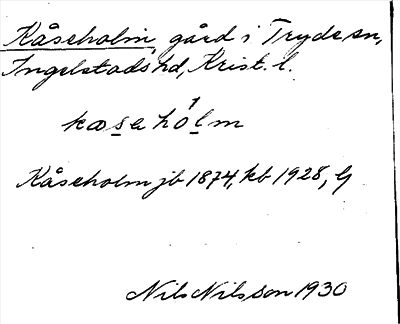 Kåseholm, gård i Tryde sn,
Ingelstads hd, Krist. l.
kasa hólm
Kåseholm jb 1874, kb 1928, G
Nils Nilsson 1930